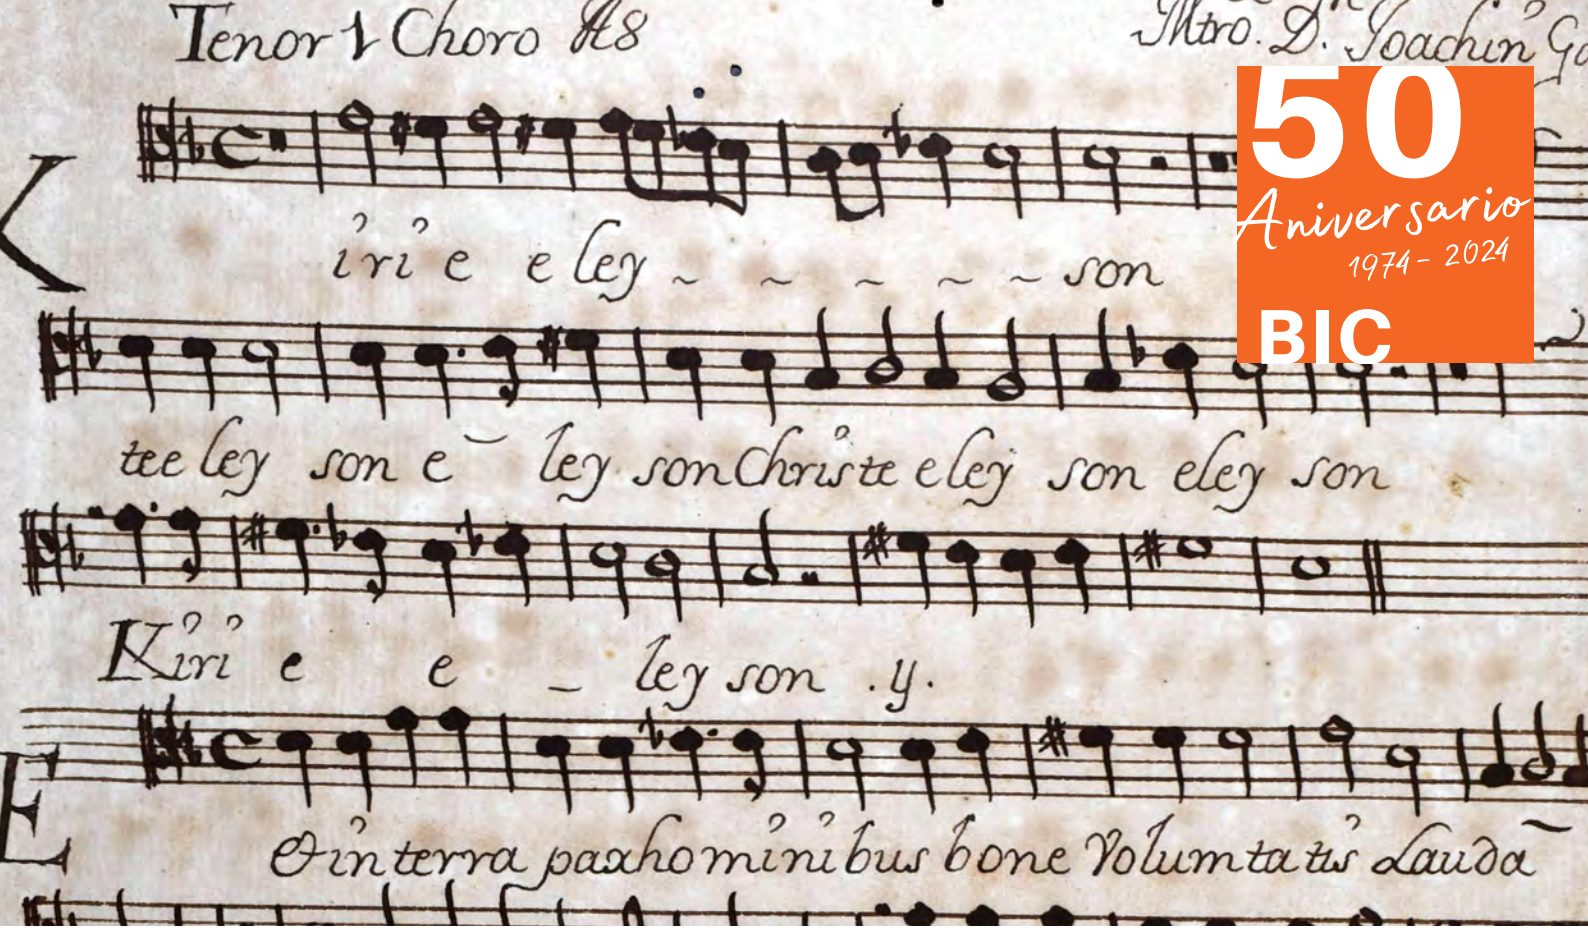 Tenor 1 Choro A8
Mtro. D. Joachin
50
Aniversario
1974 - 2024
BIC
K
irie eley ~ ~ ~ ~ ~ son
tee ley son e ley son Christe eley son eley son
Kirie e _ ley son .y.
E
Et in terra pax hominibus bone Volumtatis Lauda